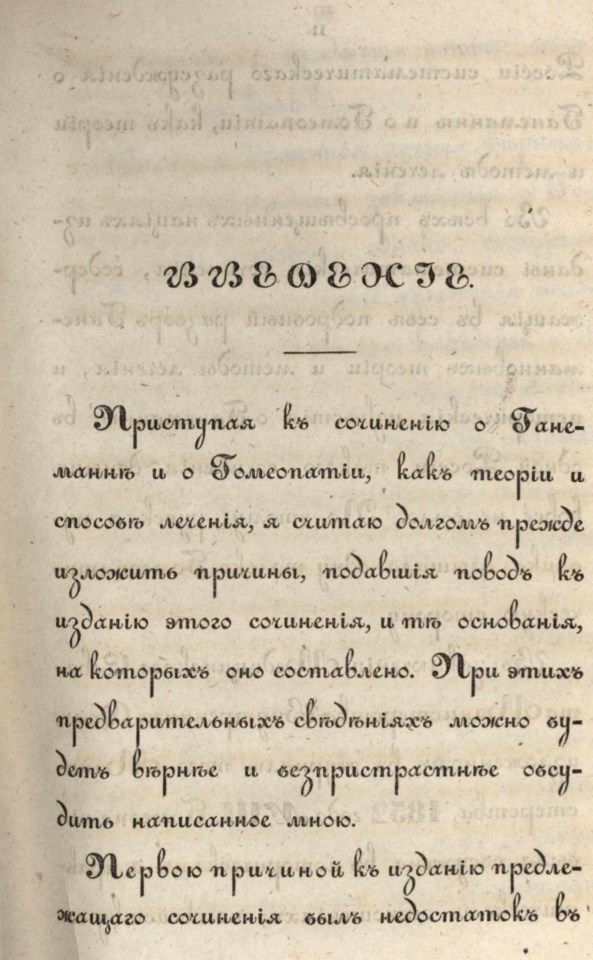 ВВЕДЕНІЕ.
Приступая къ сочиненію о Гане-
маннѣ и о Гомеопатіи, какъ теоріи и
способѣ леченія, я считаю долгомъ прежде
изложить причины, подавшія поводъ къ
изданію этого сочиненія, и тѣ основанія,
на которыхъ оно составлено. При этихъ
предварительныхъ свѣдѣніяхъ можно бу-
детъ вѣрнѣе и безпристрастнѣе обсу-
дить написанное мною.
Первою причиной къ изданію предле-
жащаго сочиненія былъ недостатокъ въ